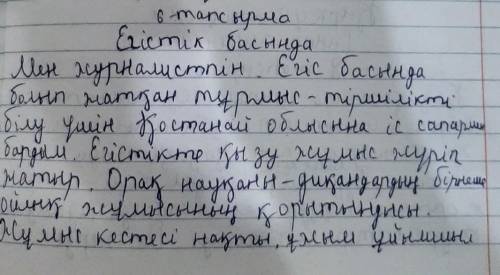 6-тапсырма
Егістік басында
Мен журналистпін. Егіс басында
болып жатқан тұрмыс-тіршілікті
білу үшін Қостанай облысына іс
бардым. Егістікте қызу жұмыс жүріп
жатыр. Орақ науқаны-диқандардың
жұмысының қорытындысы.
Жұмыс кестесі нақты, ұжым